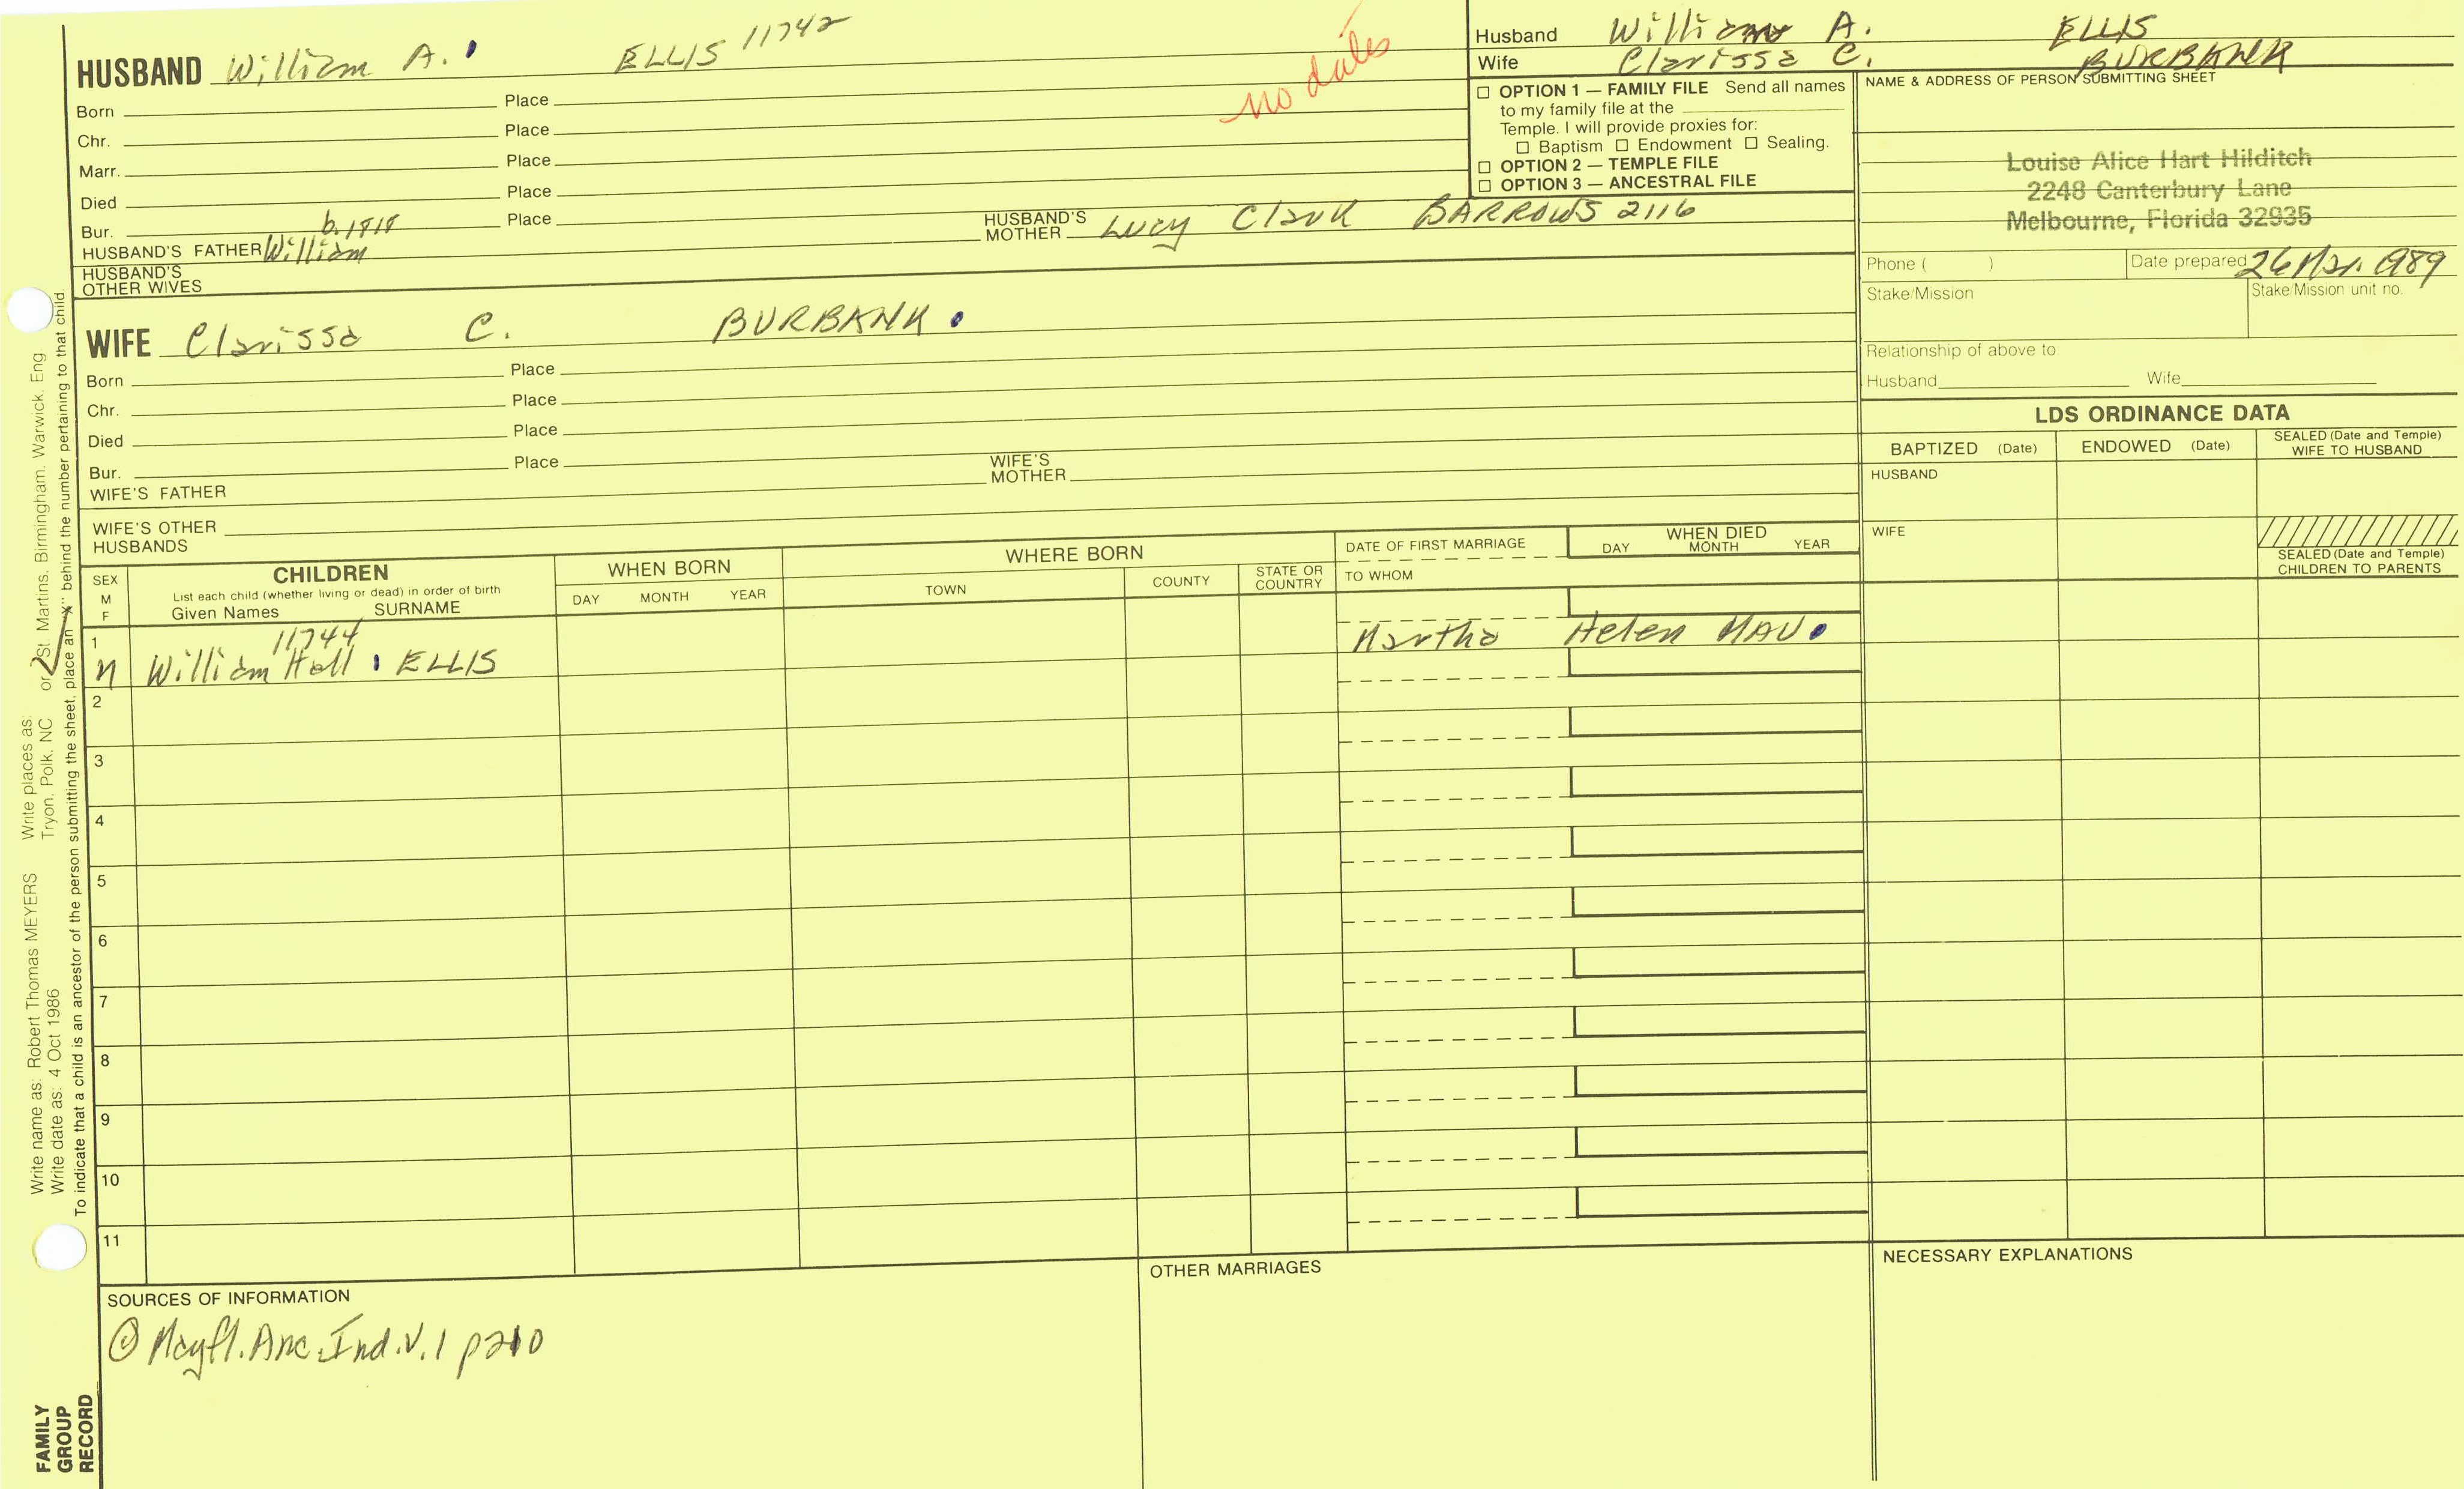 HUSBAND William A. ELLIS 11742
no dates
Born Place
Chr. Place
Marr. Place
Died Place
Bur. Place
b. 1818
HUSBAND'S FATHER William
HUSBAND'S MOTHER Lucy Clark BARROWS 2116
HUSBAND'S OTHER WIVES
WIFE Clarissa C. BURBANK
Born Place
Chr. Place
Died Place
Bur. Place
WIFE'S FATHER
WIFE'S MOTHER
WIFE'S OTHER HUSBANDS
Husband William A. ELLIS
Wife Clarissa C. BURBANK
☐ OPTION 1 — FAMILY FILE Send all names
to my family file at the
Temple. I will provide proxies for:
☐ Baptism ☐ Endowment ☐ Sealing.
☐ OPTION 2 — TEMPLE FILE
☐ OPTION 3 — ANCESTRAL FILE
NAME & ADDRESS OF PERSON SUBMITTING SHEET
Louise Alice Hart Hilditch
2248 Canterbury Lane
Melbourne, Florida 32935
Phone ( ) Date prepared 26 Mar. 1989
Stake/Mission Stake/Mission unit no.
Relationship of above to:
Husband Wife
LDS ORDINANCE DATA
BAPTIZED (Date) ENDOWED (Date) SEALED (Date and Temple) WIFE TO HUSBAND
HUSBAND
WIFE
SEALED (Date and Temple) CHILDREN TO PARENTS
SEX M F
CHILDREN
List each child (whether living or dead) in order of birth
Given Names SURNAME
WHEN BORN
DAY MONTH YEAR
WHERE BORN
TOWN COUNTY STATE OR COUNTRY
DATE OF FIRST MARRIAGE
TO WHOM
WHEN DIED
DAY MONTH YEAR
1
11744
M William Hall ELLIS Martha Helen MAU
2
3
4
5
6
7
8
9
10
11
SOURCES OF INFORMATION
① Mayfl. Anc. Ind. v. 1 p210
OTHER MARRIAGES
NECESSARY EXPLANATIONS
Write name as: Robert Thomas MEYERS Write places as:
Write date as: 4 Oct 1986 Tryon, Polk, NC or St. Martins, Birmingham, Warwick, Eng
To indicate that a child is an ancestor of the person submitting the sheet, place an "X" behind the number pertaining to that child.
FAMILY
GROUP
RECORD